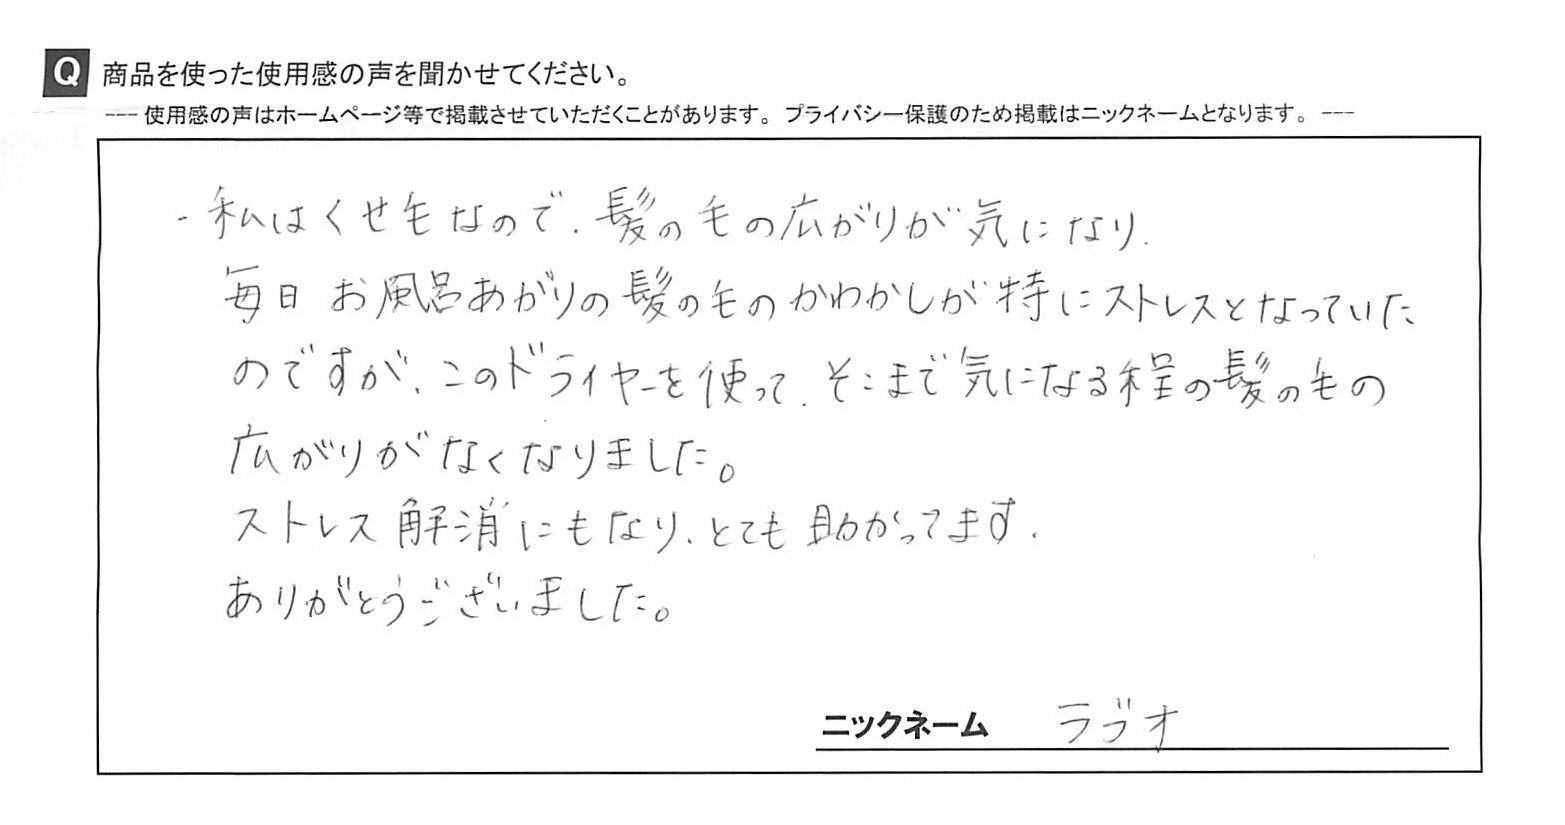 Q 商品を使った使用感の声を聞かせてください。
--- 使用感の声はホームページ等で掲載させていただくことがあります。プライバシー保護のため掲載はニックネームとなります。 ---
・私はくせ毛なので、髪の毛の広がりが気になり、
毎日お風呂あがりの髪の毛のかわかしが特にストレスとなっていた
のですが、このドライヤーを使って、そこまで気になる程の髪の毛の
広がりがなくなりました。
ストレス解消にもなり、とても助かってます。
ありがとうございました。
ニックネーム ラブオ